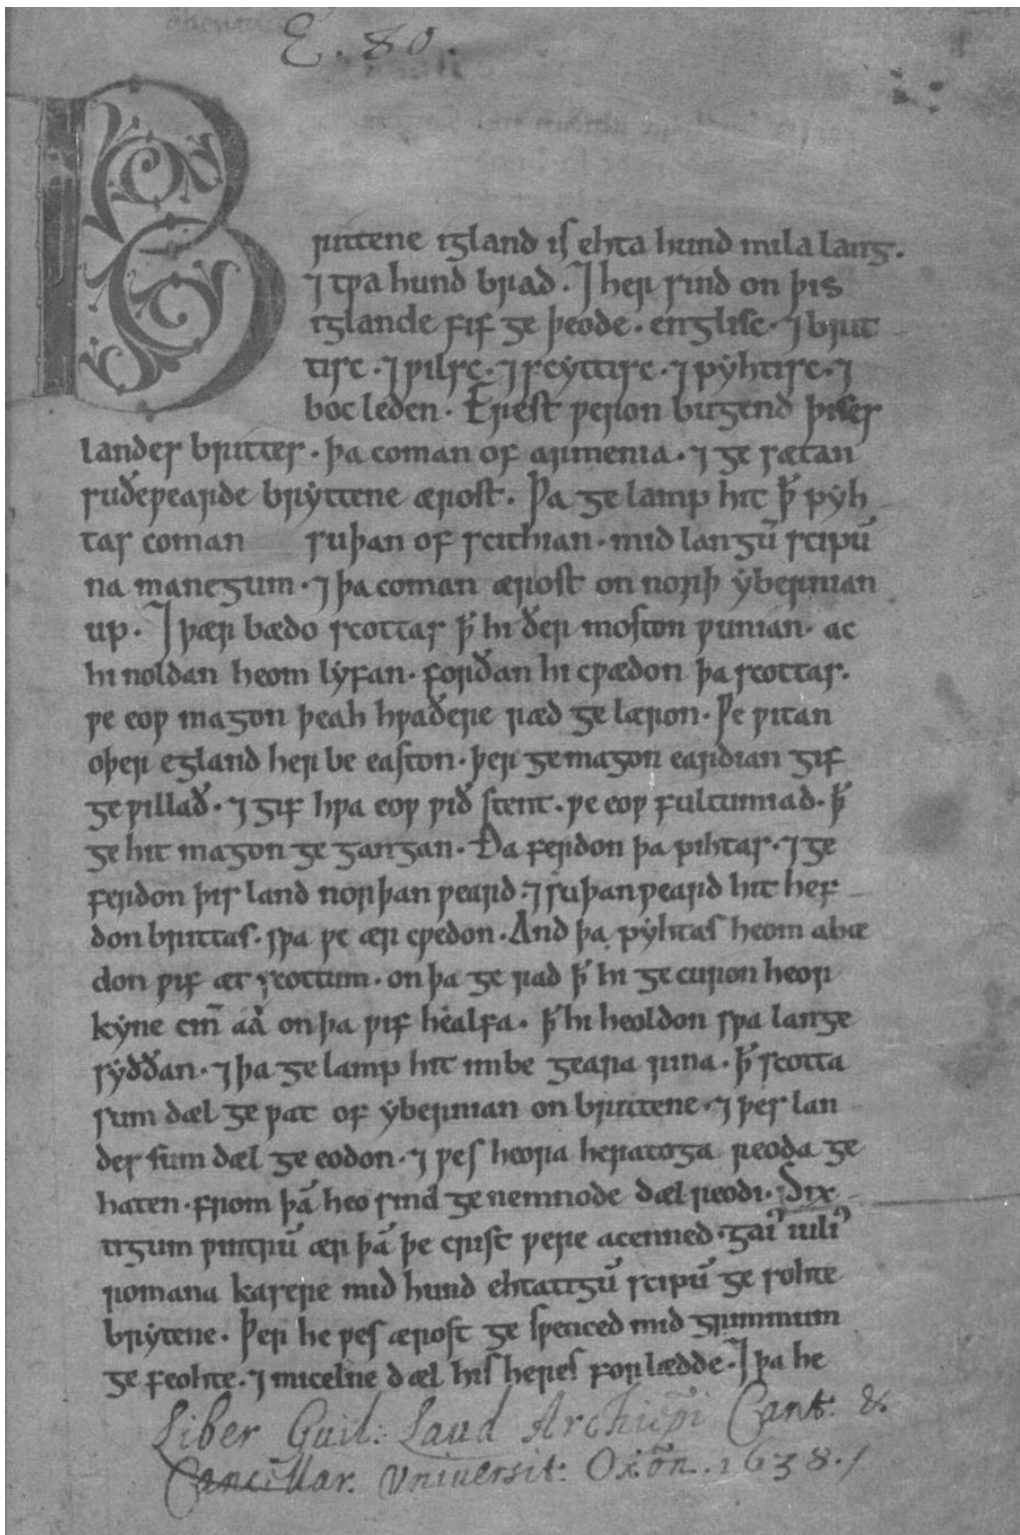 E. 80.
Brittene igland is ehta hund mila lang.
⁊ tƿa hund brad. ⁊ her sind on þis
iglande fif ge þeode. englisc. ⁊ brit
tisc. ⁊ ƿilsc. ⁊ scyttisc. ⁊ pyhtisc. ⁊
boc leden. Erest ƿeron bugend þises
landes brittes. þa coman of armenia. ⁊ ge sætan
suðeƿearde bryttene ærost. Þa ge lamp hit ꝥ pyh
tas coman suþan of scithian. mid langū scipū
na manegum. ⁊ þa coman ærost on norþ ybernian
up. ⁊ þær bædo scottas ꝥ hi ðer moston ƿunian. ac
hi noldan heom lyfan. forðan hi cƿædon þa scottas.
ƿe eoƿ magon þeah hƿaðere ræd ge læron. Ƿe ƿitan
oþer egland her be easton. þer ge magon eardian gif
ge ƿillað. ⁊ gif hƿa eoƿ ƿið stent. ƿe eoƿ fultumiad. ꝥ
ge hit magon ge gangan. Ða ferdon þa pihtas. ⁊ ge
ferdon þis land norþan ƿeard. ⁊ suþanƿeard hit hef
don brittas. sƿa ƿe ær cƿedon. And þa pyhtas heom abæ
don ƿif æt scottum. on þa ge rad ꝥ hi ge curon heor
kyne cin̄ aá on þa ƿif healfa. ꝥ hi heoldon sƿa lange
syððan. ⁊ þa ge lamp hit imbe geara rina. ꝥ scotta
sum dæl ge ƿat of ybernian on brittene. ⁊ þes lan
des sum dæl ge eodon. ⁊ ƿes heora heratoga reoda ge
haten. from þā heo sind ge nemnode dæl reodi. Six
tigum ƿintrū ær þā þe crist ƿere acenned. gai᷒ iuli᷒
romana kasere mid hund ehtatigū scipū ge sohte
brytene. Þer he ƿes ærost ge sƿenced mid grimmum
ge feohte. ⁊ micelne dæl his heres forlædde. ⁊ þa he
Liber Guil: Laud Archiep̄i Cant. &
Cancellar. Vniuersit: Oxōn. 1638./